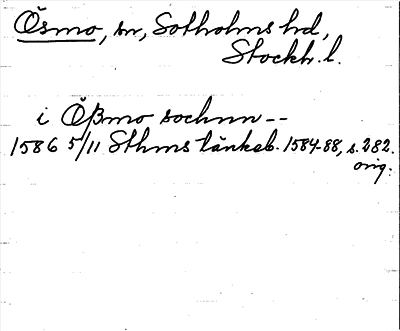 Ösmo, sn, Sotholms hd,
Stockh. l.
i Ößmo sochnn --
1586 5/11 Sthms tänkeb. 1584-88, s. 282.
orig.